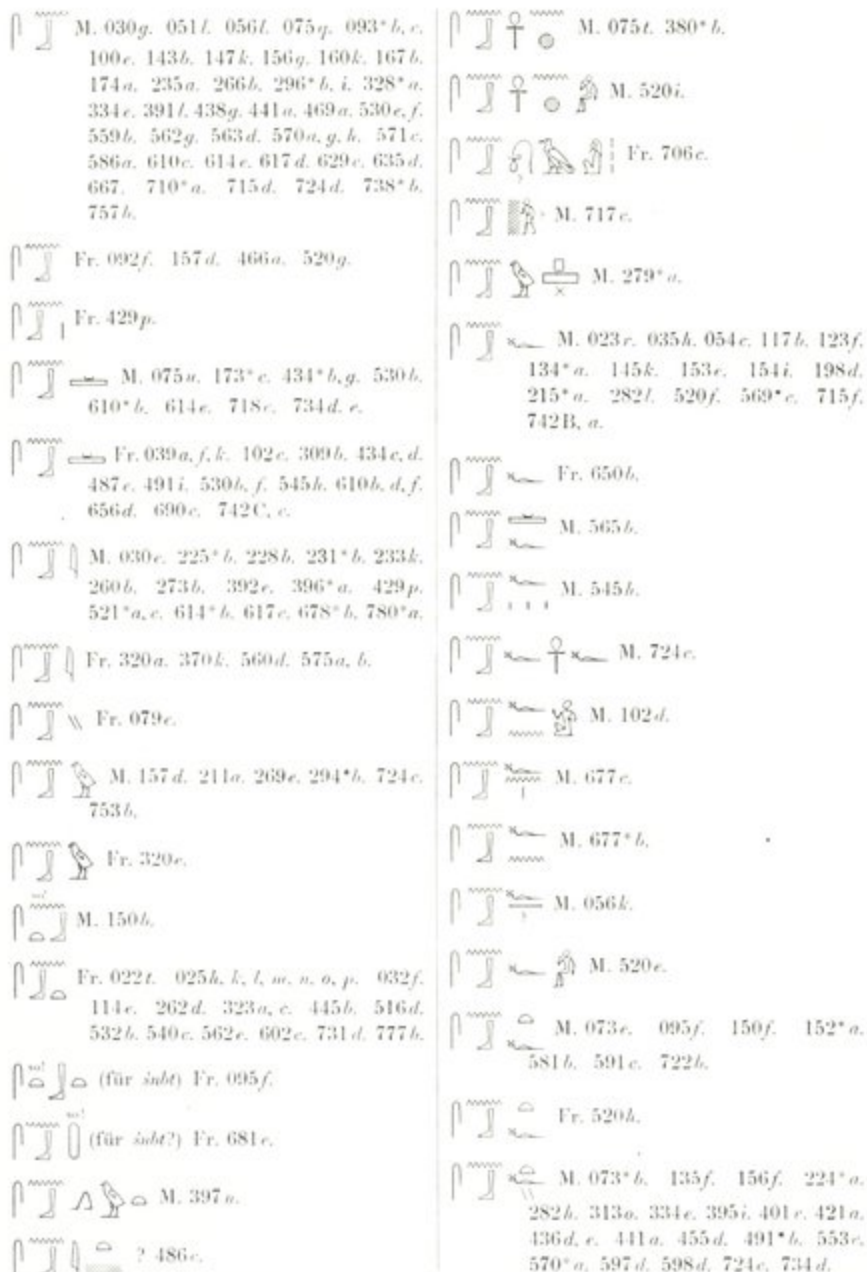 𓋴𓈖𓃀 M. 030g. 051l. 056l. 075q. 093*b, c.
100e. 143b. 147k. 156g. 160k. 167b.
174a. 235a. 266b. 296*b, i. 328*a.
334e. 391l. 438g. 441a. 469a. 530e, f.
559b. 562g. 563d. 570a, g, h. 571c.
586a. 610c. 614e. 617d. 629c. 635d.
667. 710*a. 715d. 724d. 738*b.
757b.
𓋴𓈖𓃀 Fr. 092f. 157d. 466a. 520g.
𓋴𓈖𓃀𓏤 Fr. 429p.
𓋴𓈖𓃀𓏛 M. 075u. 173*c. 434*b, g. 530b.
610*b. 614e. 718c. 734d. e.
𓋴𓈖𓃀𓏛 Fr. 039a, f, k. 102c. 309b. 434c, d.
487e. 491i. 530b, f. 545h. 610b, d, f.
656d. 690c. 742C, c.
𓋴𓈖𓃀𓇋 M. 030e. 225*b. 228b. 231*b. 233k.
260b. 273b. 392e. 396*a. 429p.
521*a, c. 614*b. 617c. 678*b. 780*a.
𓋴𓈖𓃀𓇋 Fr. 320a. 370k. 560d. 575a, b.
𓋴𓈖𓃀𓏭 Fr. 079e.
𓋴𓈖𓃀𓅱 M. 157d. 211a. 269e. 294*b. 724c.
753b.
𓋴𓈖𓃀𓅱 Fr. 320e.
so!
𓋴𓈖𓏏𓃀 M. 150h.
𓋴𓈖𓃀𓏏 Fr. 022t. 025h, k, l, m, n, o, p. 032f.
114e. 262d. 323a, c. 445b. 516d.
532b. 540c. 562e. 602c. 731d. 777b.
so!
𓋴𓏏𓃀𓏏 (für snbt) Fr. 095f.
so!
𓋴𓈖𓃀 (für snbt?) Fr. 681e.
𓋴𓈖𓃀𓂻𓅱𓏏 M. 397n.
𓋴𓈖𓃀𓇋𓏏 ? 486c.
𓋴𓈖𓃀𓋹𓈖𓐍 M. 075t. 380*b.
𓋴𓈖𓃀𓋹𓈖𓐍 M. 520i.
𓋴𓈖𓃀 ? Fr. 706c.
𓋴𓈖𓃀 M. 717c.
𓋴𓈖𓃀𓅱 M. 279*a.
𓋴𓈖𓃀𓆑 M. 023r. 035h. 054c. 117b. 123f.
134*a. 145k. 153e. 154i. 198d.
215*a. 282l. 520f. 569*c. 715f.
742B, a.
𓋴𓈖𓃀𓆑 Fr. 650b.
𓋴𓈖𓃀𓏛𓆑 M. 565b.
𓋴𓈖𓃀𓆑𓏥 M. 545b.
𓋴𓈖𓃀𓆑𓋹𓆑 M. 724c.
𓋴𓈖𓃀𓆑𓈖 M. 102d.
𓋴𓈖𓃀𓆑𓈖𓏤 M. 677c.
𓋴𓈖𓃀𓆑𓈖 M. 677*b.
𓋴𓈖𓃀𓆑 ? M. 056k.
𓋴𓈖𓃀𓆑 M. 520e.
𓋴𓈖𓃀𓏏𓆑 M. 073e. 095f. 150f. 152*a.
581b. 591c. 722b.
𓋴𓈖𓃀𓏏𓆑 Fr. 520h.
𓋴𓈖𓃀𓏏𓆑𓏭 M. 073*b. 135f. 156f. 224*a.
282h. 313o. 334e. 395i. 401c. 421a.
436d, e. 441a. 455d. 491*b. 553c.
570*a. 597d. 598d. 724c. 734d.